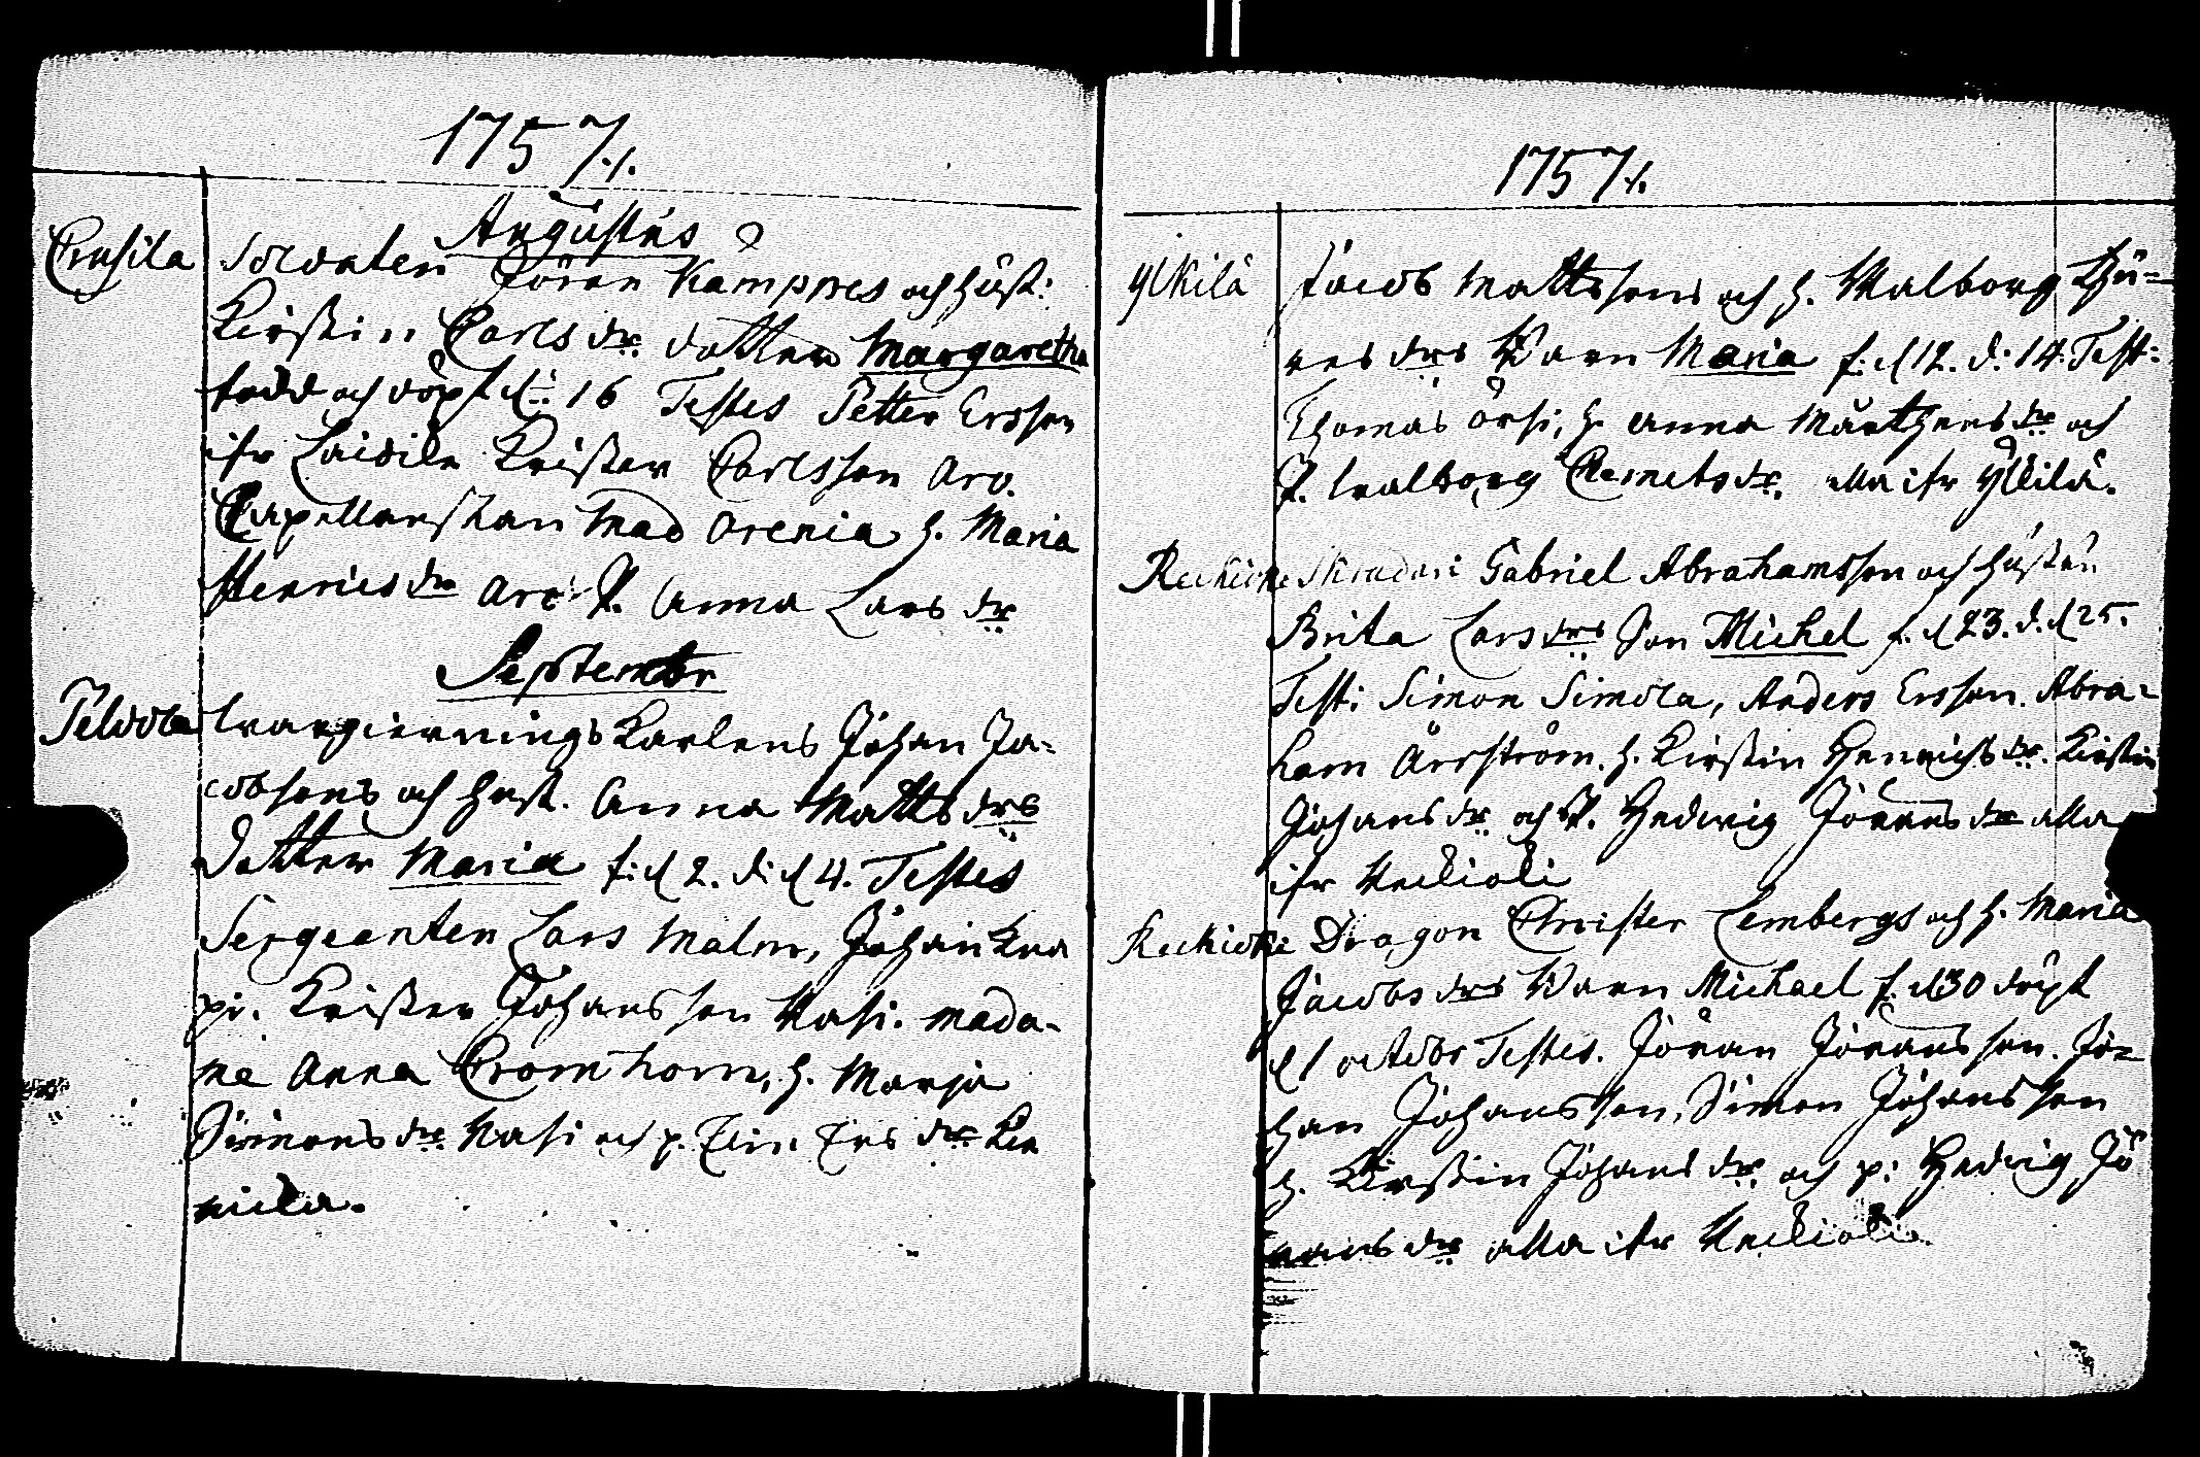 1757./.
Augustus
Crusila Soldaten Jöran Kämppes och hust:
Kirstin Carls dr dotter Margaretha
född och döpt d: 16 Testes Petter Ersson
ifr Laisila Krister Carlsson Arv.
Capellanskan Mad Orenia h. Maria
Henrics dr Arv: P. Anna Lars dr
Septembr
Peldola wargierningsKarlens Johan Ja-
cobsons och hust. Anna Matts drs
dotter Maria f: d 2. d: d 4. Testes
Sergeanten Lars Malm, Johan Kra
pi. Krister Johansson Kasi. mada-
me Anna Cromhorn, h. Marja
Simons dr Kasi och p. Elin Ers dr
nila.
1757./.
Ylkilä Jacob Mattssons och h. Walborg Thu-
res drs Barn Maria f: d 12. d: 14. Test:
Thomas Örsi, h. Anna Mårthens dr och
P. Walborg Clemets dr. alla ifr Ylkilä.
Reckioke Skradari Gabriel Abrahamsson och hustru
Brita Lars drs Son Michel f. d 23. d. d 25.
Test: Simon Simola, Anders Ersson. Abra-
ham Årström. h. Kirstin Henrichs dr. Kirstin
Johans dr och P. Hedwig Jörans dr alla
ifr Reckioki
Reckioke Dragon Christer Lembergs och h. Maria
Jacobs drs Barn Michael f. d 30 döpt
d 1 octobr Testes. Jöran Jöransson. Jo-
han Johansson, Simon Johansson
h. Kirstin Johans dr och p: Hedwig Jö
rans dr alla ifr Reckioki